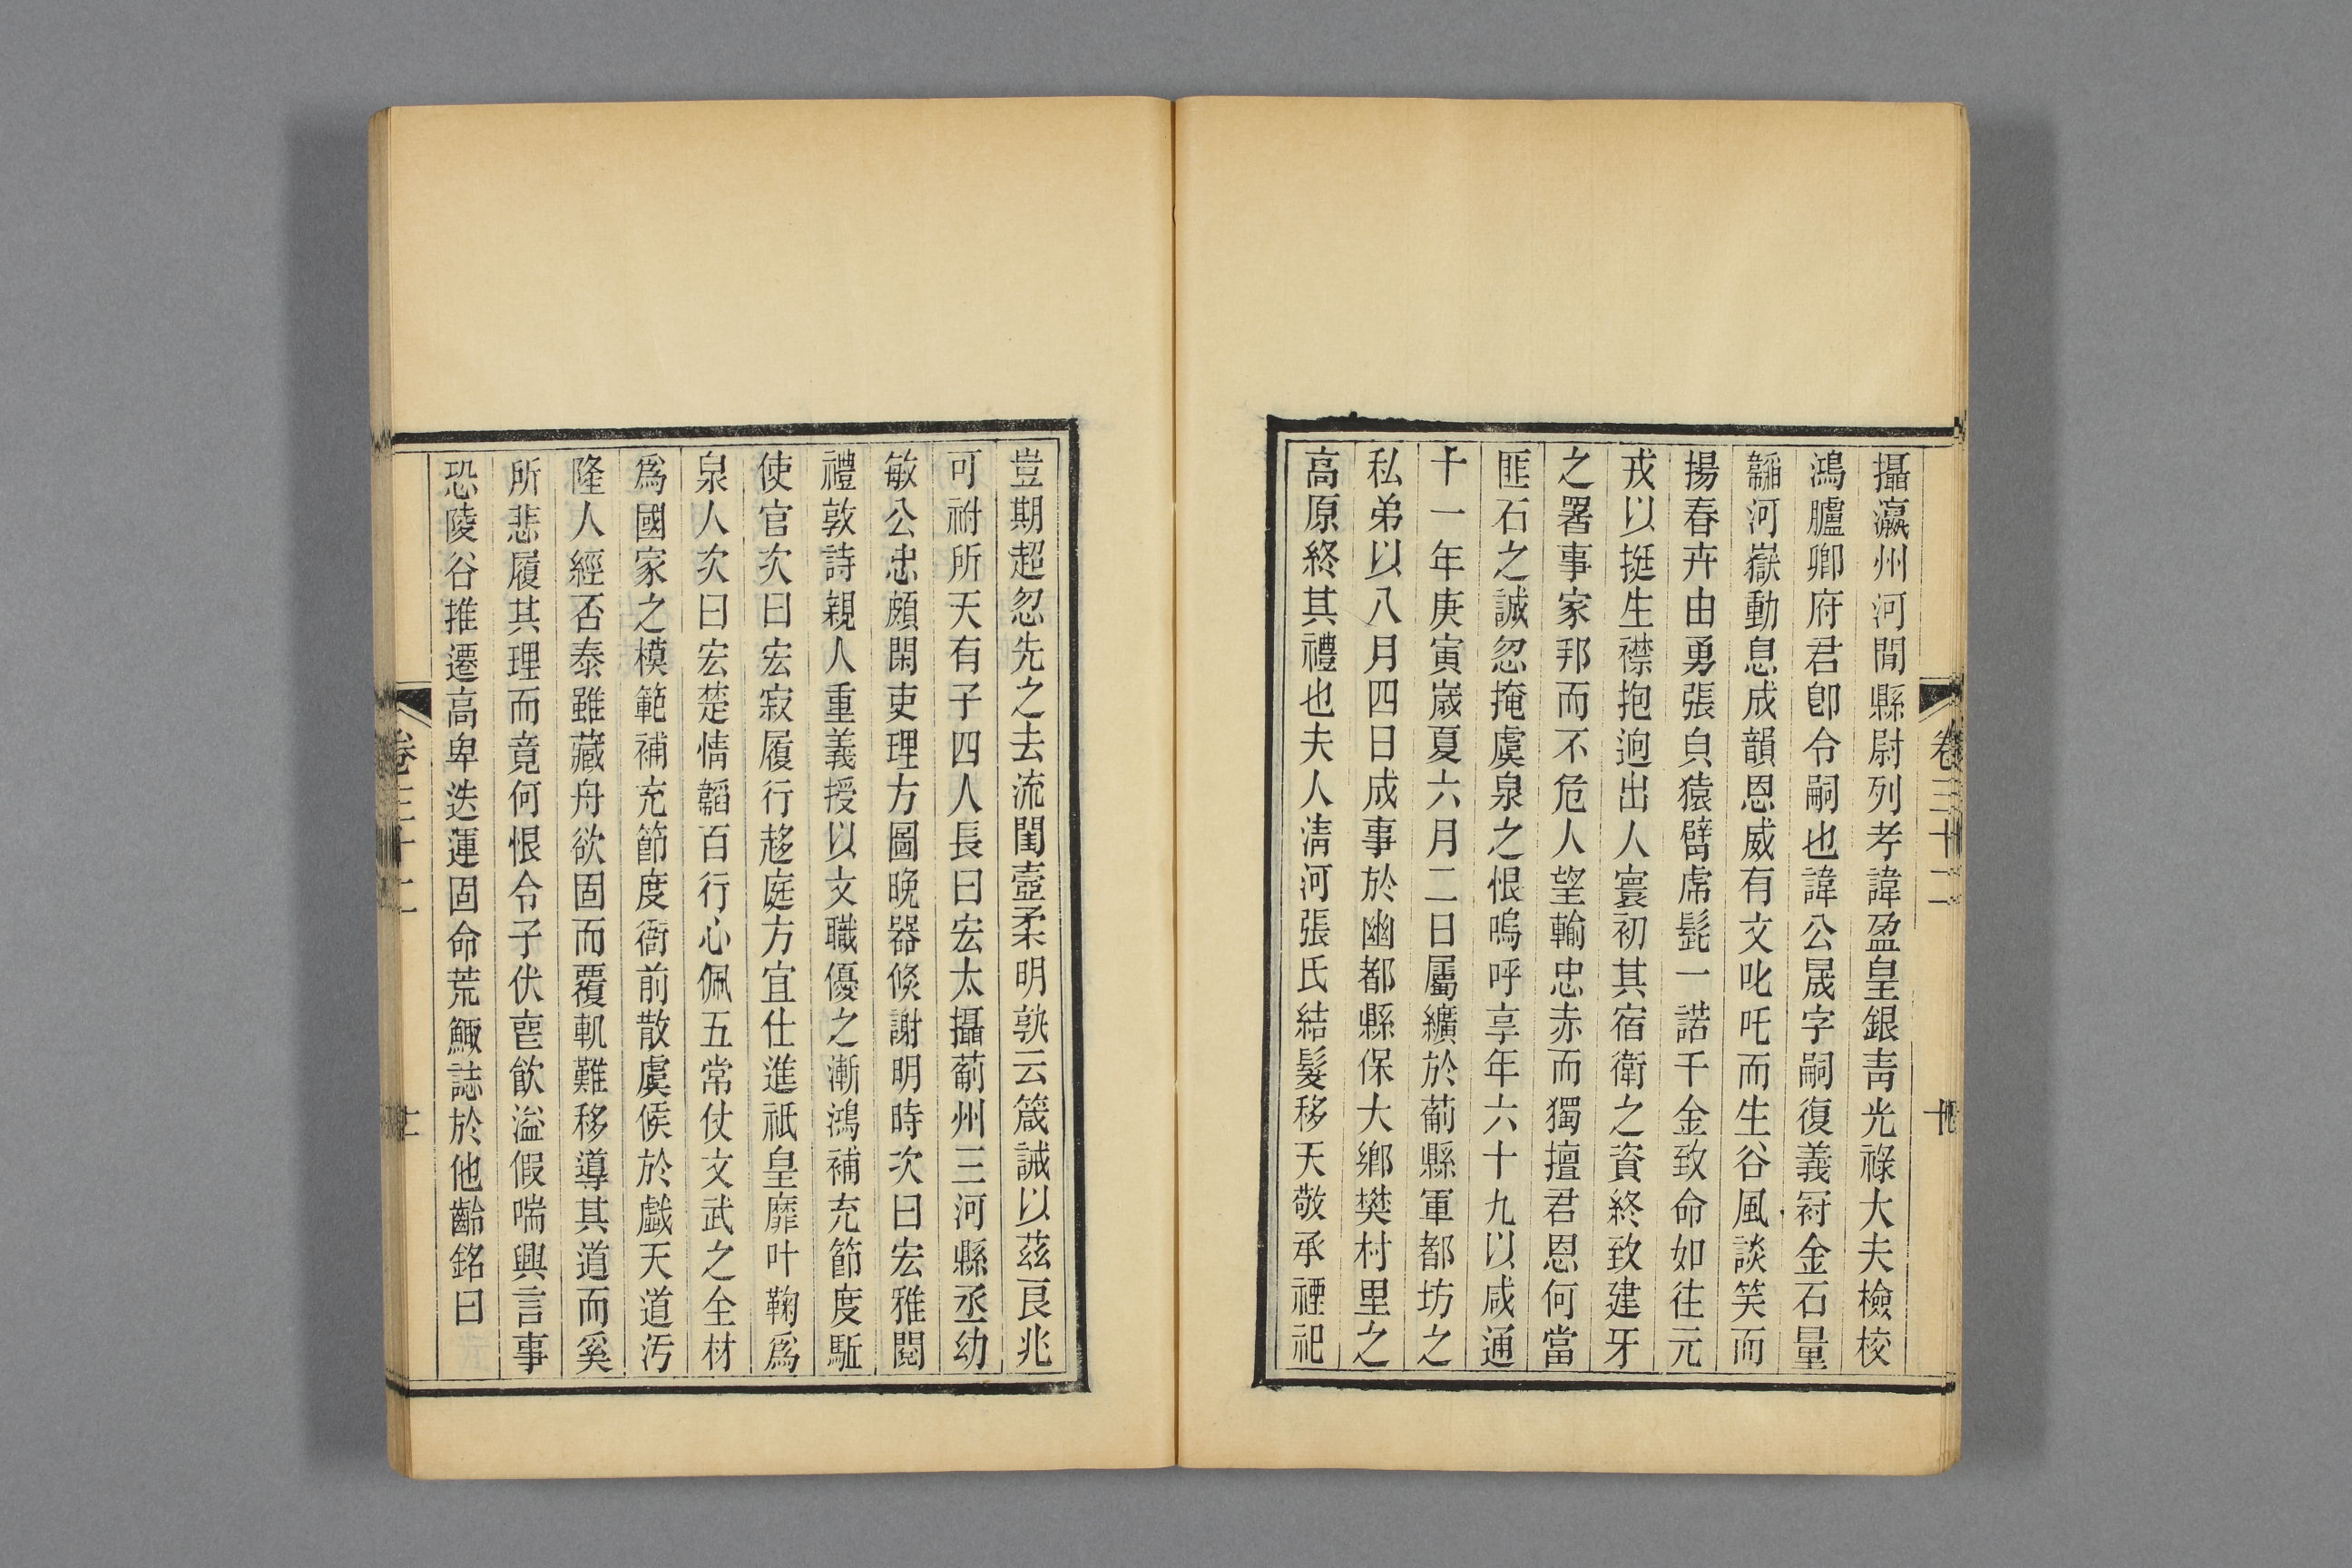 攝瀛州河間縣尉列孝諱盈皇銀青光祿大夫檢校
鴻臚卿府君卽令嗣也諱公晟字嗣復義冠金石量
韜河嶽動息成韻恩威有文叱吒而生谷風談笑而
揚春卉由勇張㒵猿臂虎髭一諾千金致命如往元
戎以挺生襟抱逈出人寰初其宿衛之資終致建牙
之署事家邦而不危人望輸忠赤而獨擅君恩何當
匪石之誠忽掩虞泉之恨嗚呼享年六十九以咸通
十一年庚寅歲夏六月二日屬纊於薊縣軍都坊之
私弟以八月四日成事於幽都縣保大鄉樊村里之
高原終其禮也夫人淸河張氏結髮移天敬承禋祀
卷三十二
十
豈期超忽先之去流閨壼柔明孰云箴誡以茲良兆
可祔所天有子四人長曰宏太攝薊州三河縣丞幼
敏公忠頗閑吏理方圖晚器倏謝明時次曰宏雅閱
禮敦詩親人重義授以文職優之漸鴻補充節度駈
使官次曰宏寂履行趍庭方宜仕進祇皇靡叶鞠爲
泉人次曰宏楚情韜百行心佩五常仗文武之全材
爲國家之模範補充節度衙前散虞候於戱天道汚
隆人經否泰雖藏舟欲固而覆軌難移導其道而奚
所悲履其理而竟何恨令子伏鬯飲溢假喘興言事
恐陵谷推遷高卑迭運固命荒鯫誌於他齡銘曰
卷三十二